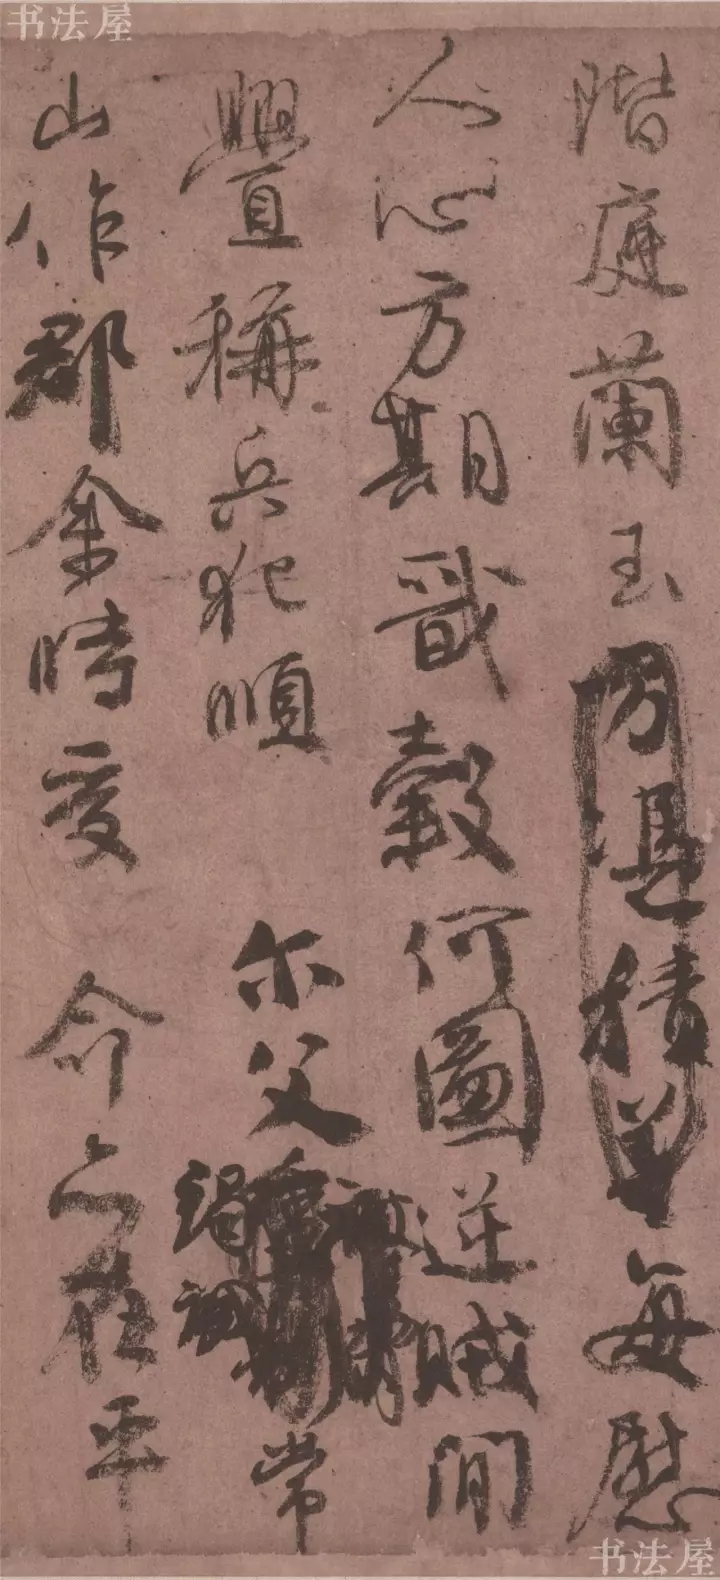 书法屋
階庭蘭玉方憑積善每慰
人心方期戩穀何圖逆賊間
釁稱兵犯順 尔父竭誠常
山作郡余時受 命亦在平
书法屋